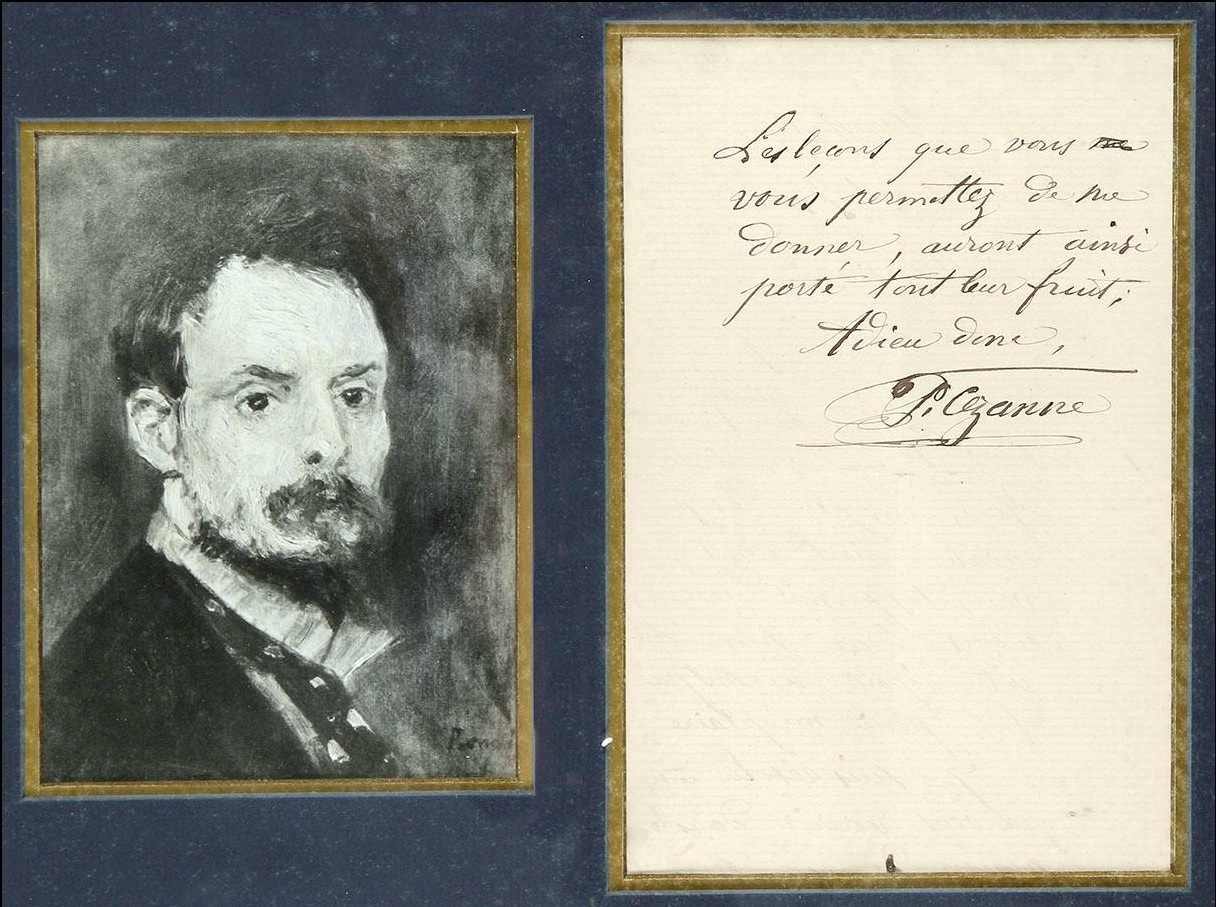 Les leçons que vous me
vous permettez de me
donner, auront ainsi
porté tout leur fruit;
Adieu donc,
P. Cézanne
Renoir